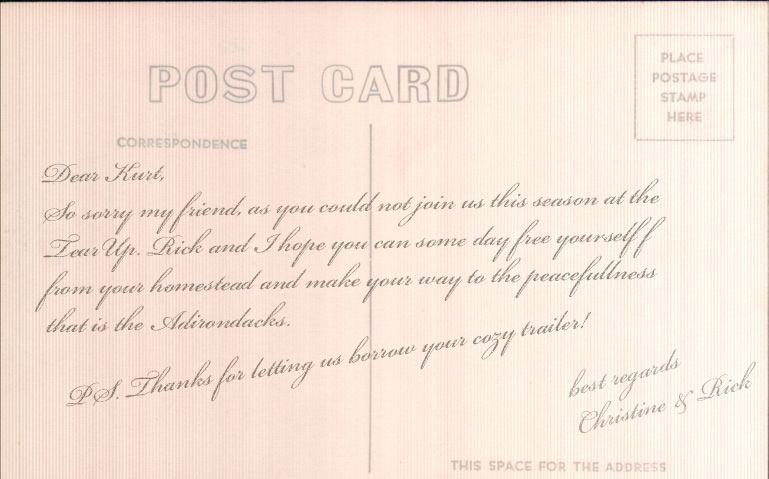 POST CARD
PLACE
POSTAGE
STAMP
HERE
CORRESPONDENCE
Dear Kurt,
So sorry my friend, as you could not join us this season at the
Tear Up. Rick and I hope you can some day free yourself f
from your homestead and make your way to the peacefullness
that is the Adirondacks.
P.S. Thanks for letting us borrow your cozy trailer!
best regards
Christine & Rick
THIS SPACE FOR THE ADDRESS